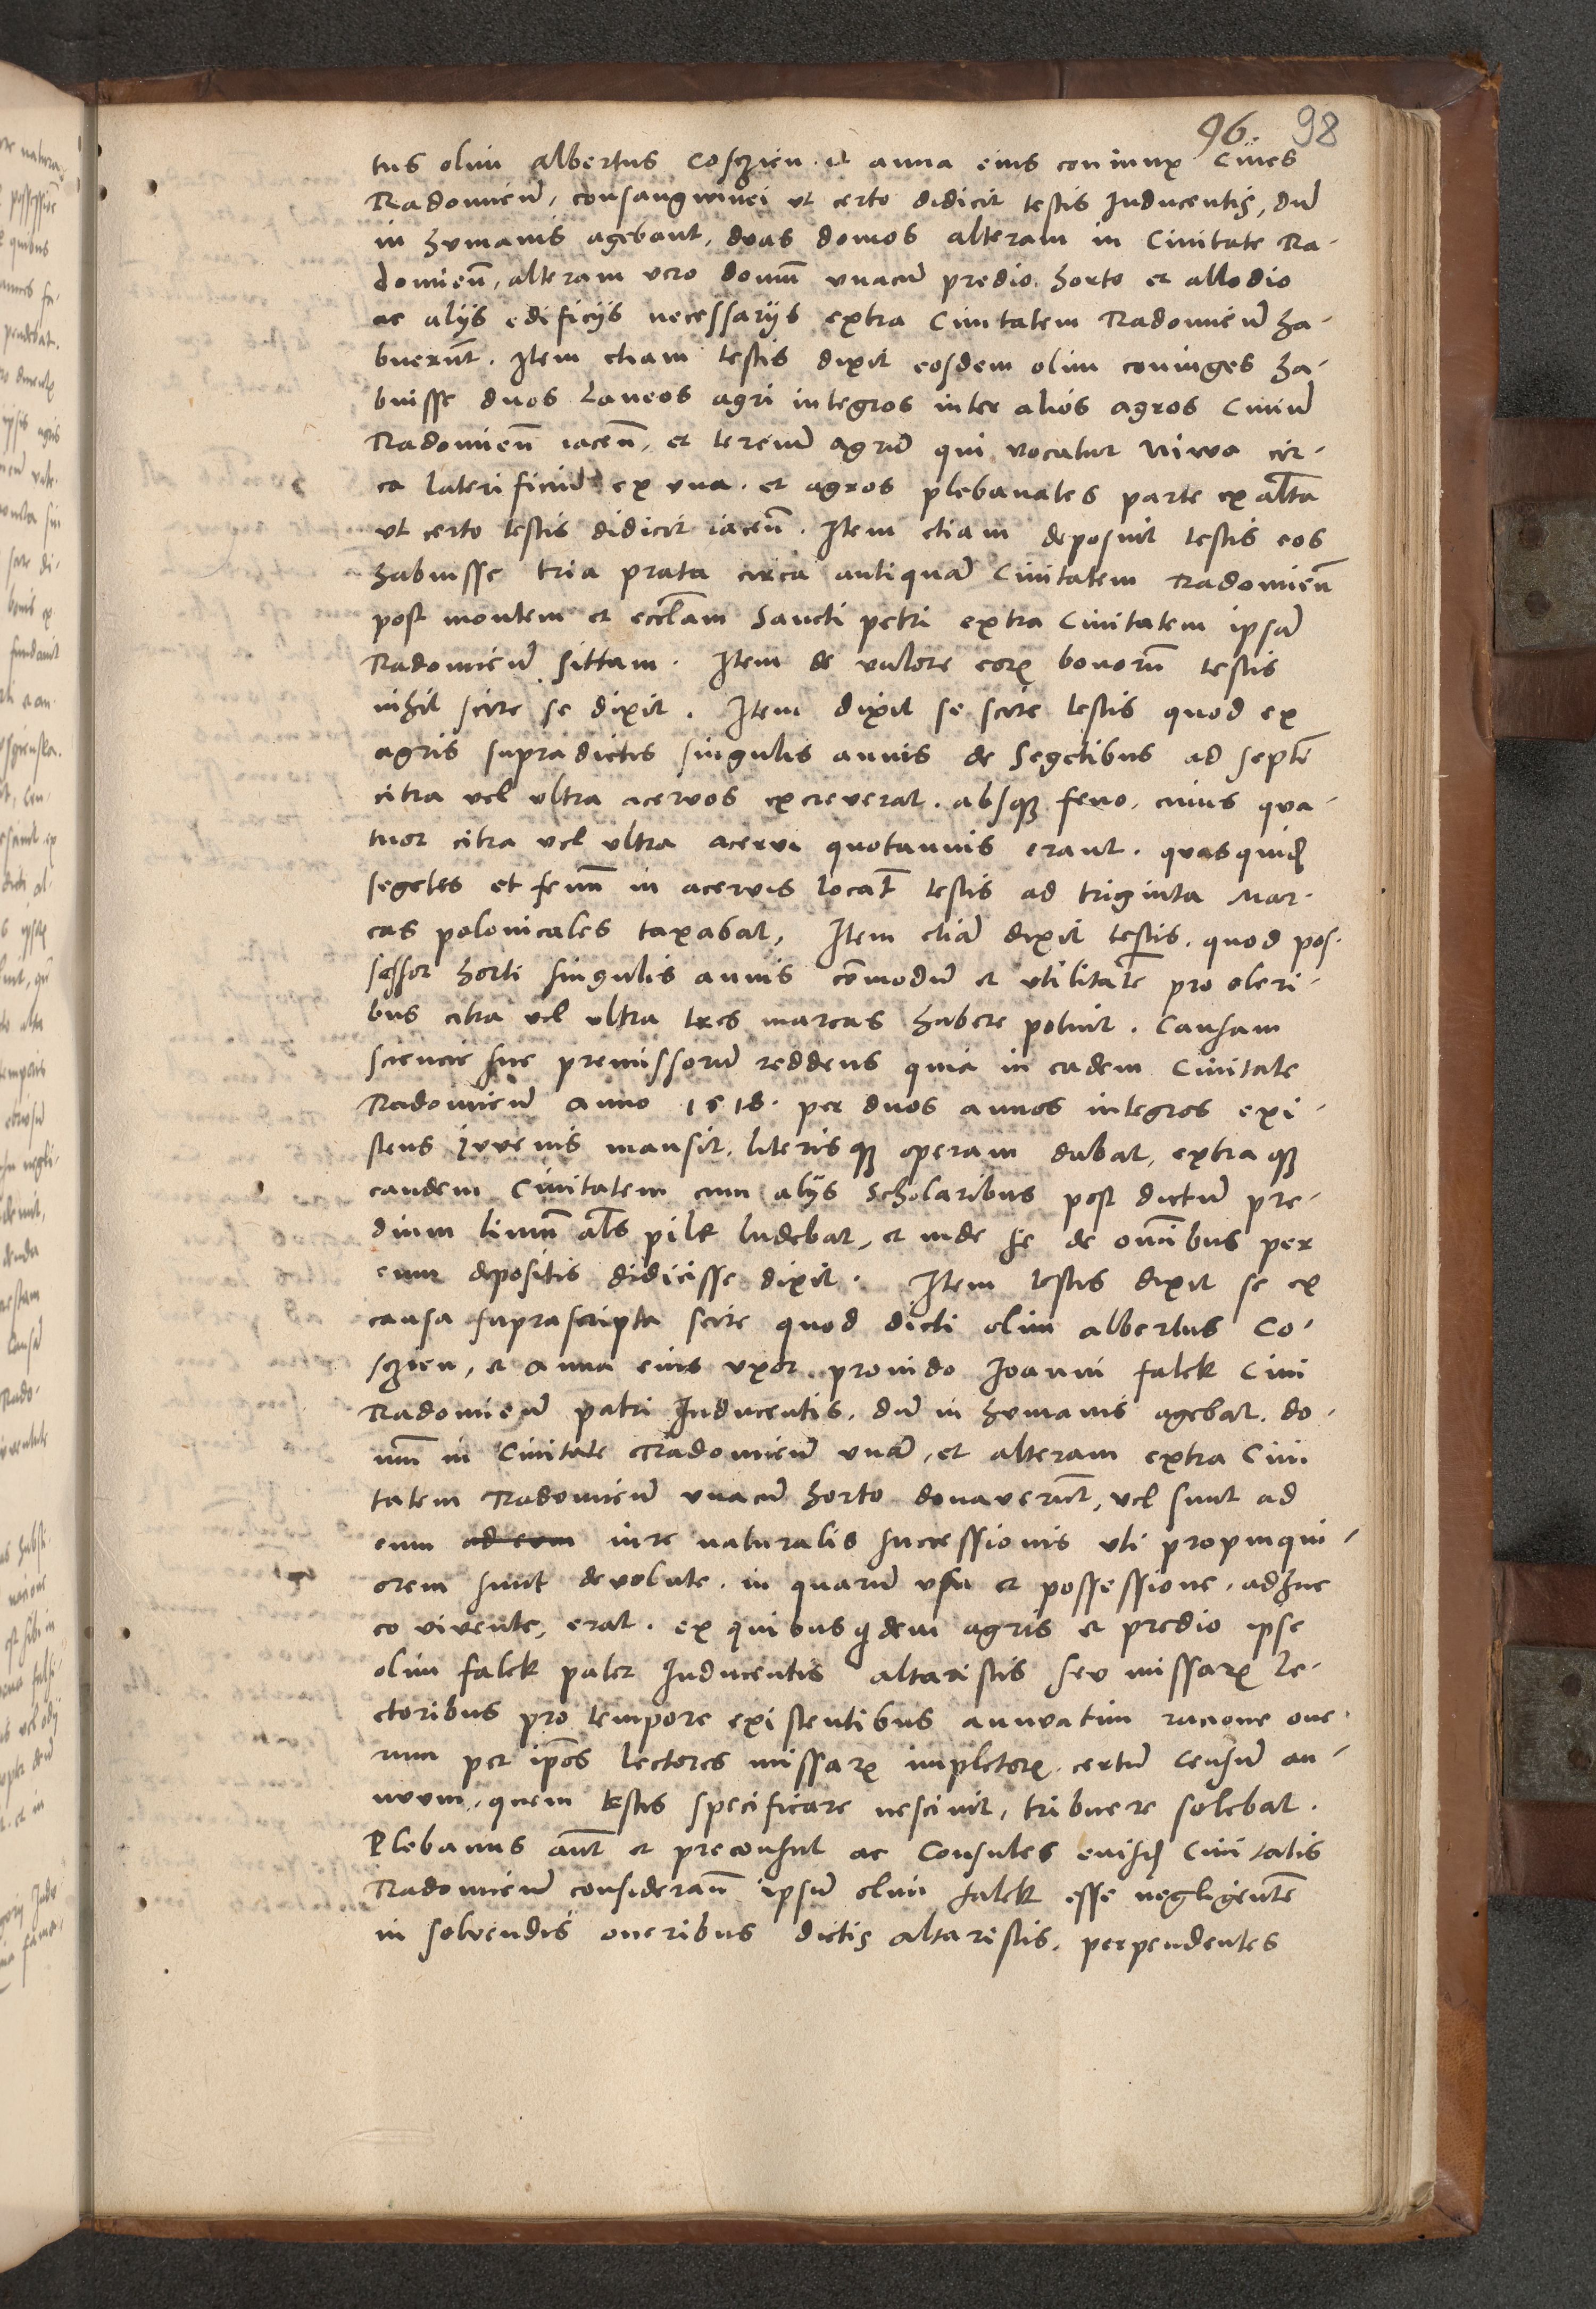 96. 98
tus olim Albertus Coschien. et anna eius coniunx Ciues
Radomien̄, consangwinei vt certo didicit testis Inducentis, dū
in humanis agebant, duas domos alteram in Ciuitate Ra-
domien̄, alteram vero domū vnacū predio, horto et allodio
ac alijs edificijs necessarijs extra Ciuitatem Radomien̄ ha-
buerūt. Item etiam testis dixit eosdem olim coniuges ha-
buisse duos Laneos agri integros inter alios agros Ciuiū
Radomien̄ iacen̄, et terciū agrū qui vocatur Niwa cir-
ca laterificiū ex vna. et agros plebanales parte ex alt̄a
vt certo testis didicit iacen̄. Item etiam deposuit testis eos
habuisse tria prata circa antiquā Ciuitatem Radomien̄
post montem et eccl̄am Sancti petri extra Ciuitatem ipsā
Radomien̄ sittam. Item de valore eoꝝ bonorū testis
nihil scire se dixit. Item dixit se scire testis quod ex
agris supradictis singulis annis de Segetibus ad septē
citra vel vltra aceruos excreuerat. absqꝫ feno, cuius qua-
tuor citra vel vltra acerui quotannis erant. quasquid̄
segetes et fenū in aceruis locat̄ testis ad triginta Mar-
cas polonicales taxabat, Item etiā dixit testis. quod pos-
sessor horti singulis annis cōmodū et vtilitatē pro oleri-
bus citra vel vltra tres marcas habere potuit. Causam
sciencie sue premissorū reddens quia in eadem Ciuitate
Radomien̄ anno 1518. per duos annos integros exi-
stens Iuuenis mansit, literisqꝫ operam dabat, extraqꝫ
eandem Ciuitatem cum alijs Scholaribus post dictū pre-
dium als̄ pile ludebat, et inde se de om̄ibus per
eum depositis didicisse dixit. Item testis dixit se ex
causa suprascripta scire quod dicti olim albertus Co-
schien, et Anna eius vxor. prouido Ioanni falek Ciui
Radomien̄ patri Inducentis, dū in humanis agebat. do-
mū in Ciuitate Radomien̄ vnā, et alteram extra Ciui
tatem Radomien̄ vnacū horto donauerūt, vel sunt ad
eum ad eum iure naturalis successionis vti propinqui-
orem sunt deuolute. in quarū vsu et possessione, adhuc
eo viuente, erat. ex quibusqͥdem agris et predio ipse
olim falek pater Inducentis altaristis seu missaꝝ le-
ctoribus pro tempore existentibus annuatim racione one-
rum per ip̄os lectores missaꝝ impletoꝝ. certū Censū an-
nuum, quem testis specificare nesciuit, tribuere solebat.
Plebanus aut̄ et preconsul ac Consules euisd̄ Ciuitatis
Radomien̄ consideran̄ ipsū olim falek esse negligentē
in soluendis oneribus dictis altaristis, perpendentes